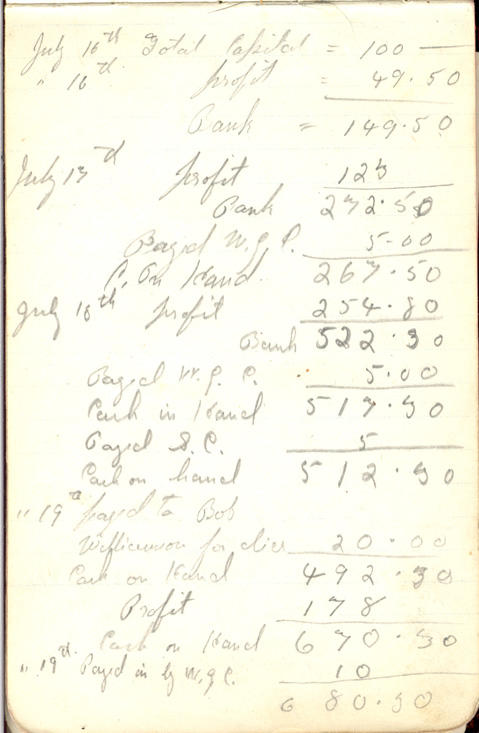 July 16th Total Capital = 100 —
" 16th profit = 49.50
Bank = 149.50
July 17th profit 123
Bank 272.50
Payed W.G.C. 5-00
C. On Hand. 267.50
July 18th profit 254.80
Bank 522.30
Payed W.G.C. " 5.00
Cash in Hand 517.30
Payed S.C. 5
Cash on hand 512.30
" 19th payed to Bob
Williamson for dice 20.00
Cash on Hand 492.30
Profit 178
Cash on Hand 670.30
" 19th. Payed in by W.G.C. 10
680.30